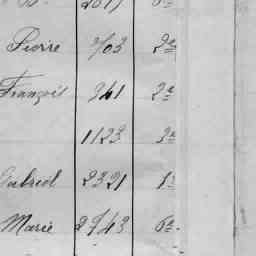 Pierre 903 2e
François 961 2e
1123 3e
Gabriel 2321 1e
Marie 2743 6e